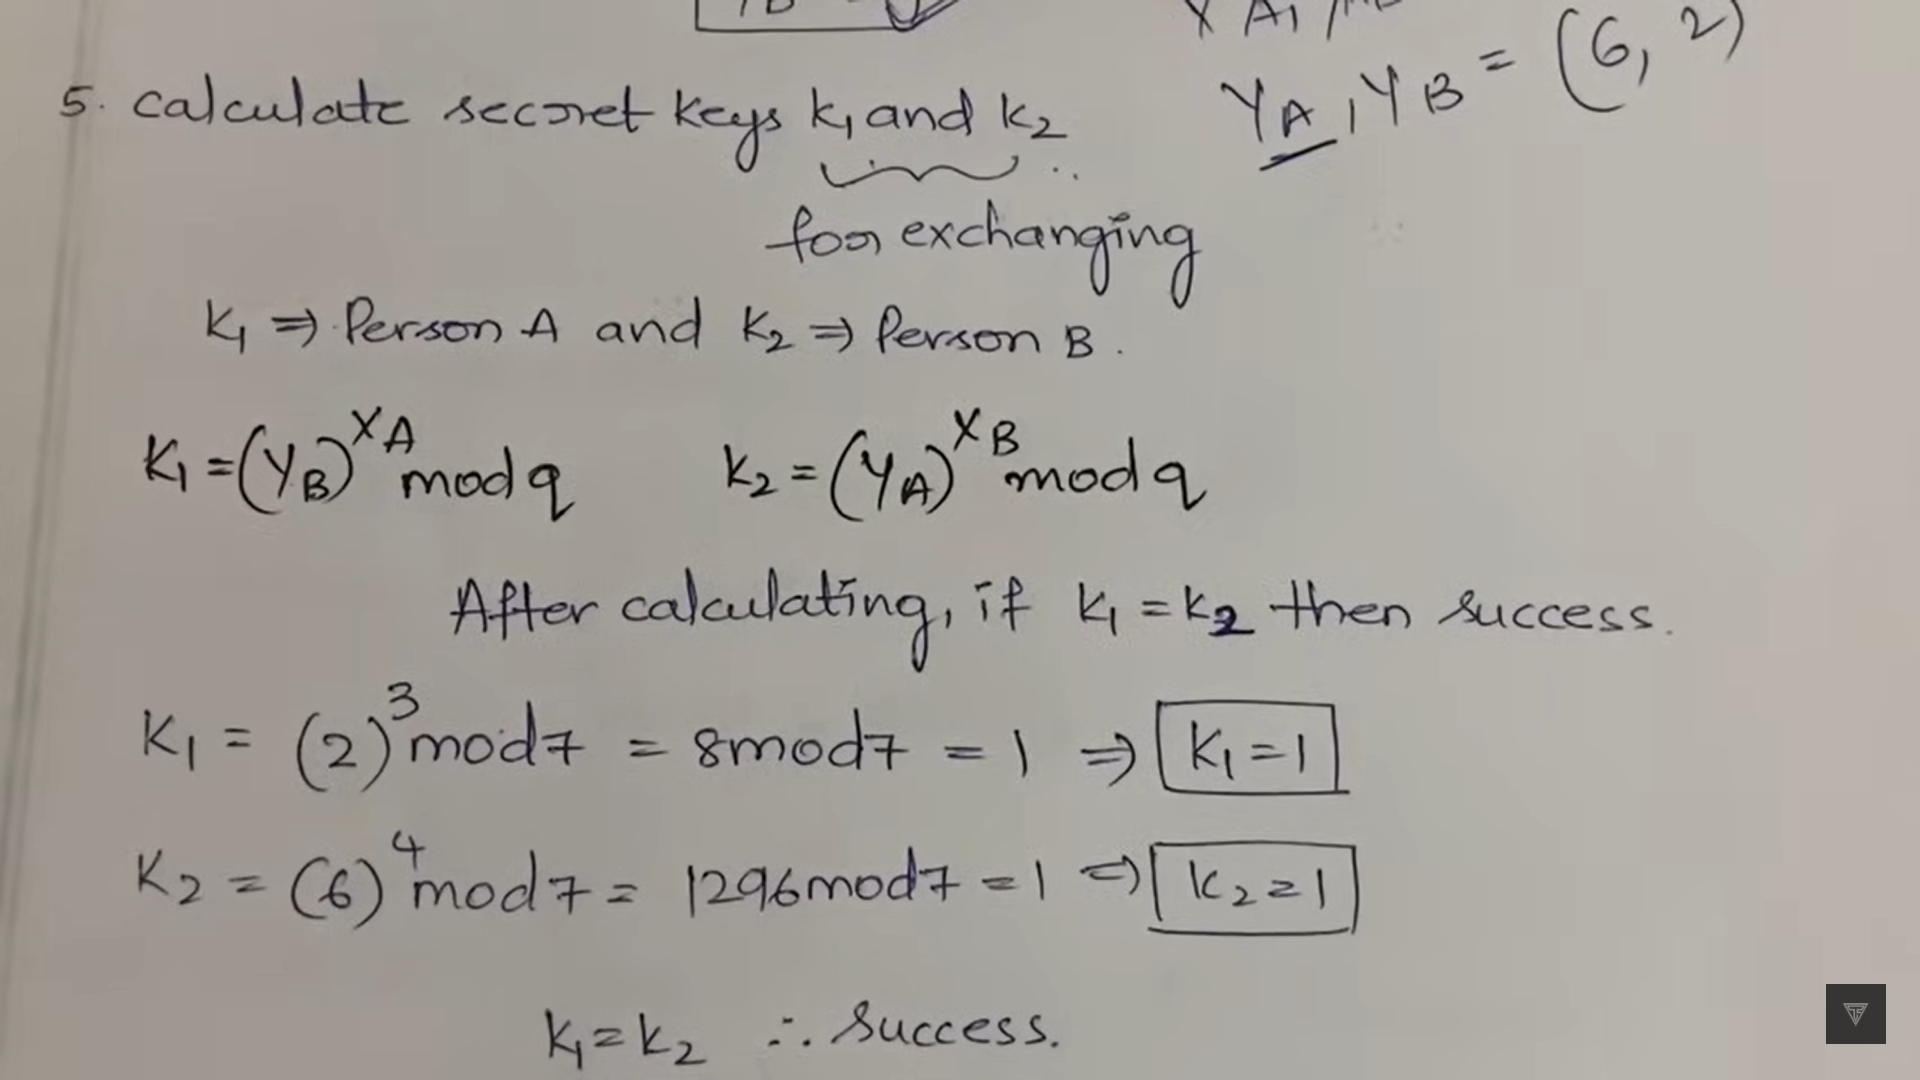 5. calculate secret keys k₁ and k₂
YA, YB = (6, 2)
for exchanging
k₁ ⇒ Person A and k₂ ⇒ Person B.
K₁ = (YB)^XA mod q
k₂ = (YA)^XB mod q
After calculating, if k₁ = k₂ then success.
K₁ = (2)³ mod 7 = 8 mod 7 = 1 ⇒ K₁ = 1
K₂ = (6)⁴ mod 7 = 1296 mod 7 = 1 ⇒ K₂ = 1
k₁ = k₂ ∴ success.